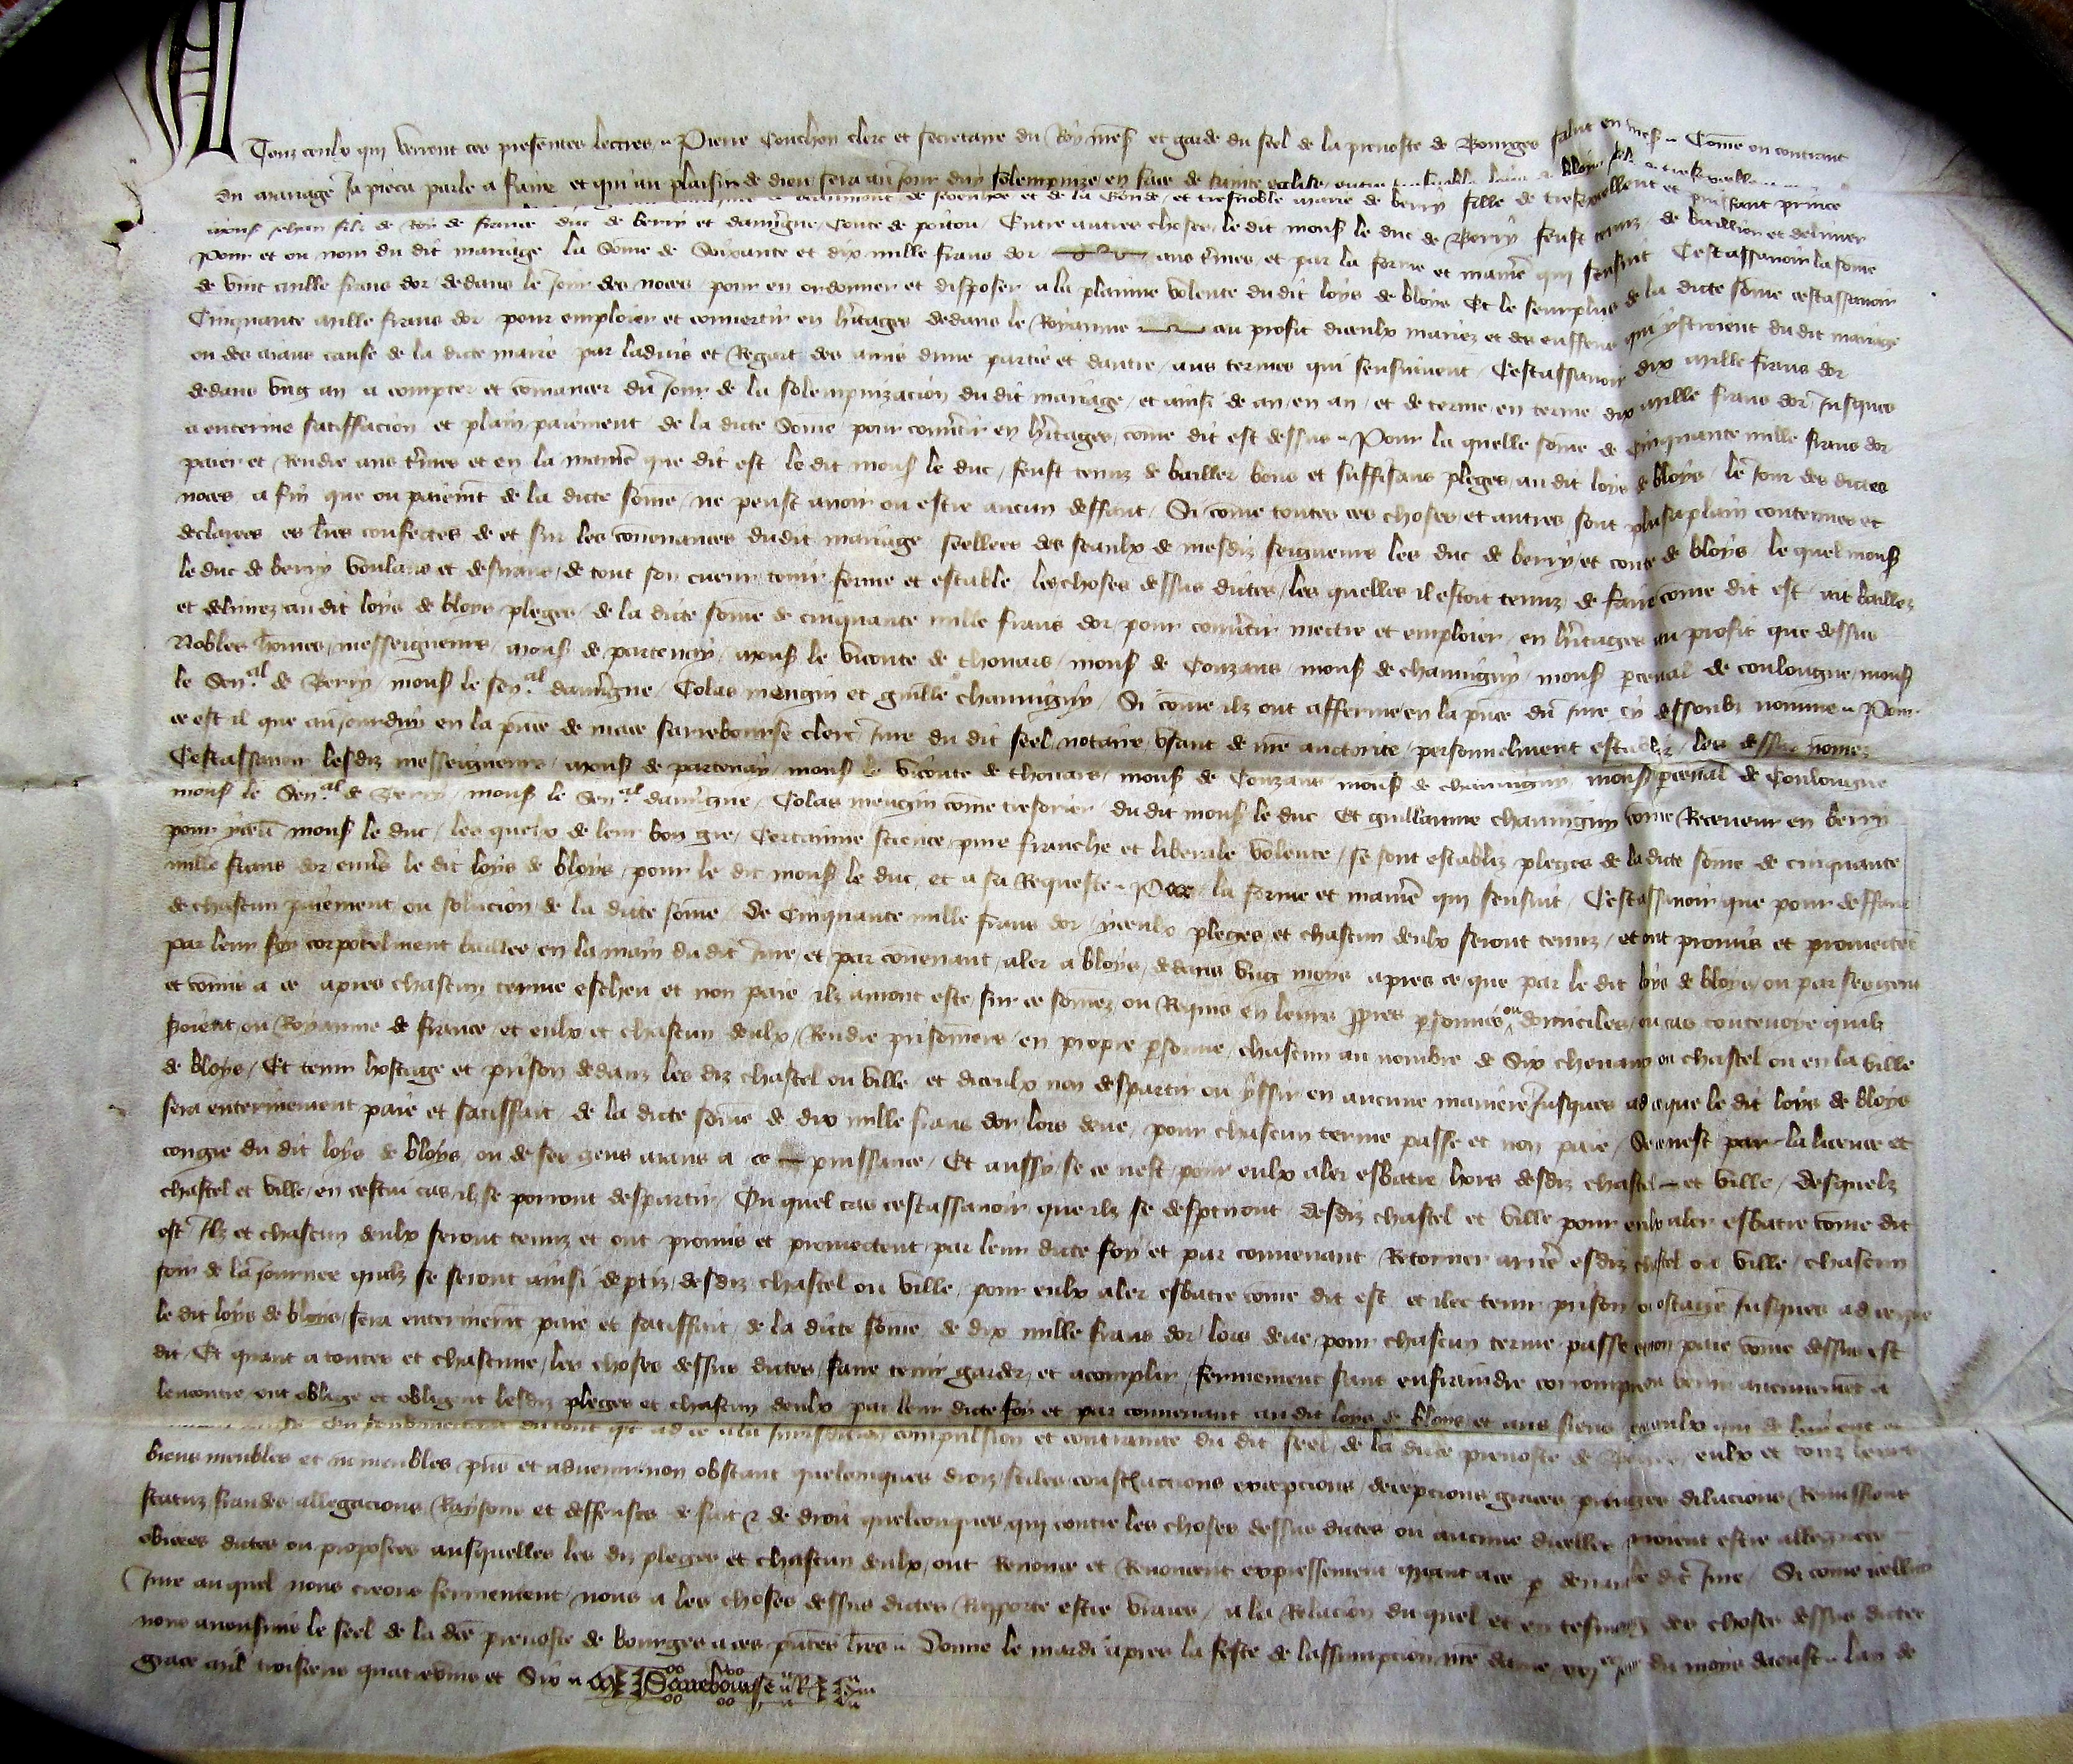 A Touz ceulx qui verront ces presentes lectres Pierre Couchon clerc et secretaire du Roy nress et garde du seel de la prevoste de Bourges salut en Come ou contraut
du mariage Ja pieca parle a faire et qui au plaisir de dieu sera au Jour duy solempnize en face de sainte eglise entre
filz de Roy de france duc de berry et dauvergne conte de poitou Entre autres choses le dit mons le duc de Berry feust tenuz de baillier et delivrer
Pour et ou nom du dit mariage la Some de Soixante et dix mille frans dor aus tmes et par la forme et manie qui sensuit Cestassavoir la some
de vint mille frans dor dedans le Jour des noces pour en ordonner et disposer a la plainne volente dudit loys de bloys Et le seurplus de la dicte some cestassavoir
Cinquante mille frans dor pour emploier et convertir en hitages dedans le Royaume au profit diceulx mariez et des enffens qui ystroient du dit mariage
ou des aians cause de la dicte marie par ladvis et Regart des amis dune partie et dautre aus termes qui sensuivent Cestassavoir dix mille frans dor
dedans ung an a compter et comancer du Jour de la solempnizacion du dit mariage et ainsi de an en an et de terme en terme dix mille frans dor Jusques
a enterine satiffacion et plain paiement de la dicte Some pour convtir en hitages come dit est dessus Pour la quelle some de Cinquante mille frans dor
paier et Rendre aus tmes et en la manie que dit est le dit mons le duc feust tenuz de bailler bons et suffisans pleges au dit loys de bloys le Jour des dictes
noces a fin que ou paiemt de la dicte some ne peust avoir ou estre aucun deffaut Si come toutes ces choses et autres sont plus aplain contenues et
declarees es lres confectes de et sur les convenances dudit mariage seellees des seaulx de mesdiz seigneurs les duc de berry et conte de bloys le quel mons
le duc de berry voulans et desirans de tout son cueur tenir ferme et estable les choses dessus dictes les quelles il estoit tenuz de faire come dit est ait baillez
et delivrez au dit loys de bloys pleges de la dicte some de cinquante mille frans dor pour convtir mectre et emploier en hitages au profit que dessus
Nobles homes messeigneurs mons de partenay mons le viconte de thouars mons de Couzans mons de chauvigny mons pceval de coulougne mons
le Sen.al de Berry mons le sen.al dauvgne Colas mengin et guille chauvigny Si come ilz ont afferme en la pnce du Jure cy dessoubz nomme Pour
ce est il que au Jourduy en la pnce de mace sarrebourse clerc Jure du dit seel notaire usant de nre auctorite personnelment establiz les dessus nomez
Cestassavoir lesdiz messeigneurs mons de partenay mons le viconte de thouars mons de Couzans mons de chauvigny mons pceval de Coulougne
mons le Sen.al de Berry mons le Sen.al dauvgne Colas mengin come tresorier du dit mons le duc Et guillaume chauvigny come Receveur en berry
pour yceli mons le duc les quelx de leur bon gre certainne science pure franche et liberale volente se sont establiz pleges de la dicte some de cinquante
mille frans dor envs le dit loys de bloys pour le dit mons le duc et a sa Requeste la forme et manie qui sensuit Cestassavoir que pour deffaut
de chascun paiement ou solucion de la dicte some de Cinquante mille frans dor yceulx pleges et chascun deulx seront tenuz et ont promis et promectet
par leur foy corporelment baillee en la main du dit Jure et par convenant aler a bloys dedans ung moys apres ce que par le dit loys de bloys ou par ses gens
et comis a ce apres chascun terme escheu et non paie ilz auront este sur ce somez ou Requis en leurs ppres psonnes ou domiciles ou cas contenoye quilz
soient ou Royaume de france et eulx et chascun deulx Rendre prisonniers en propre psonne chascun au nombre de Six chevaux ou chastel ou en la ville
de bloys Et tenir hostage et prison dedanz les diz chastel ou ville et diceulx non despartir ou yssir en aucune maniere Jusques adce que le dit loys de bloys
sera enterinement paie et satiffait de la dicte some de dix mille frans dor lors deue pour chascun terme passe et non paie Se ce nest par la licence et
congie du dit loys de bloys ou de ses gens aians a ce puissance Et aussy se ce nest pour eulx aler esbatre hors desdiz chastel et ville desquelz
chastel et ville en cestui cas ilz se porront despartir Ou quel cas cestassavoir que ilz se desptiront desdiz chastel et ville pour eulx aler esbatre come dit
est Ilz et chascun deulx seront tenuz et ont promis et promectent par leur dicte foy et par convenant Retorner arrie esdiz chastel ou ville chascun
soir de la Journee quilz se seront ainsi deptiz desdiz chastel ou ville pour eulx aler esbatre come dit est et ilec tenir prison ou ostage Jusques adce que
le dit loys de bloys sera enterinemt paie et satiffait de la dicte some de dix mille frans dor lors deue pour chascun terme passe et non paie come dessus est
dit Et quant a toutes et chascune les choses dessus dictes faire tenir garder et acomplir fermement sans enfraindre corrompre ou venir aucunement a
lencontre ont oblige et obligent lesdiz pleges et chascun deulx par leur dicte foy et par convenant au dit loys de bloys et aus siens
du tout qt ad ce a la Jurisdicion compulsion et contrainte du dit seel de la dicte prevoste de eulx et touz leurs
biens meubles et nomeubles pns et advenir non obstant quelconques droiz stilles constitucions excepcions decepcions graces privileges dilacions Remissions
statuz fraudes allegacions Raysons et deffenses de fait & de droit quelconques qui contre les choses dessus dictes ou aucune dicelles porroient estre alleguees
obicees dictes ou proposees ausquelles les diz pleges et chascun deulx ont Renonce et Renoncent expressement quant a ce p devant le dit Jure Si come icellui
Jure auquel nous creons fermement nous a les choses dessus dictes Rapporte estre vraies a la Relacion du quel et en tesmoing des choses dessus dictes
nous avons mis le seel de la dce prevoste de bourges a ces pntes lres Donne le mardi apres la feste de lassumpcion nre dame du moys daoust lan de
grace mil troiscens quatrevins et Six Sarrebourse